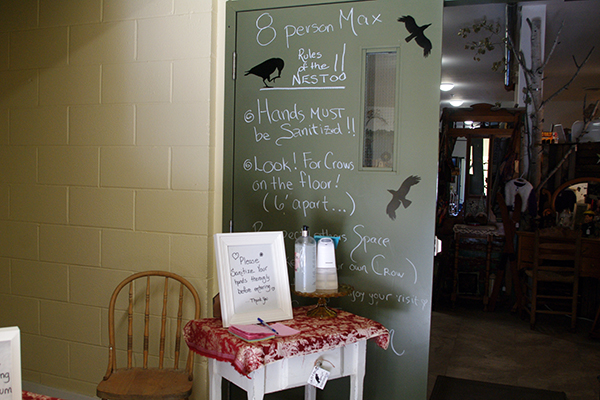 8 person Max
Rules
of the !!
NESTOO
Hands MUST
be Sanitized!!
Look! For Crows
on the floor!
(6' apart...)
Space
own Crow)
joy your visit
Please
Sanitize Your
hands thoroughly
before entering
Thank You